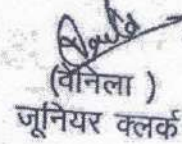 (वेनिला )
जूनियर क्लर्क